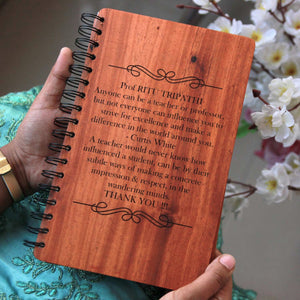 Prof RITU TRIPATHI
Anyone can be a teacher or professor,
but not everyone can influence you to
strive for excellence and make a
difference in the world around you.
- Curtis White
A teacher would never know how
influenced a student, can be by their
subtle ways of making a concrete
impression & respect, in the
wandering minds.
THANK YOU !!!